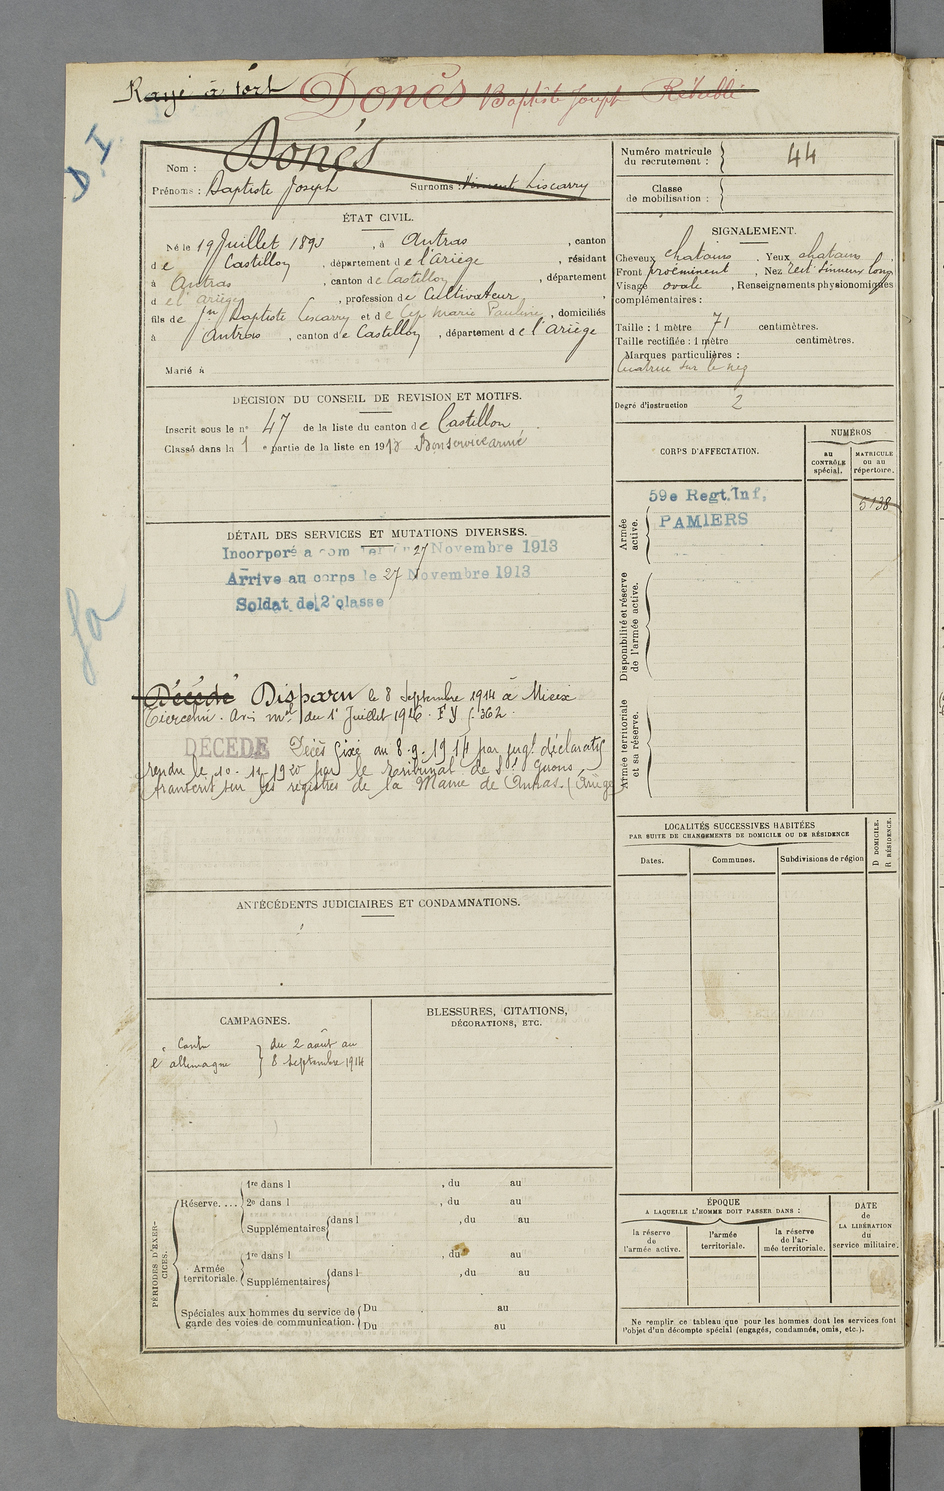 Rayé à tort Donés Baptiste Joseph Rétabli
D.I
Nom : Donés
Prénoms : Baptiste Joseph Surnoms : Vincent Liscarry
Numéro matricule du recrutement : 44
Classe de mobilisation :
ÉTAT CIVIL.
Né le 19 Juillet 1893, à Antras, canton
de Castillon, département de l'ariège, résidant
à Antras, canton de Castillon, département
de l'ariège, profession de Cultivateur,
fils de Baptiste Liscarry et de Marie Pauline, domiciliés
à Antras, canton de Castillon, département de l'ariège
Marié à
SIGNALEMENT.
Cheveux chatains, Yeux chatains.
Front proéminent, Nez rect. sinueux long
Visage ovale, Renseignements physionomiques
complémentaires :
Taille : 1 mètre 71 centimètres.
Taille rectifiée : 1 mètre centimètres.
Marques particulières :
sur le nez
Degré d'instruction 2
DÉCISION DU CONSEIL DE REVISION ET MOTIFS.
Inscrit sous le n° 47 de la liste du canton de Castillon.
Classé dans la 1e partie de la liste en 1913 Bon service armé
CORPS D'AFFECTATION.
NUMÉROS
au CONTRÔLE spécial.
MATRICULE ou au répertoire.
Armée active.
59e Regt. Inf,
PAMIERS
5138
Disponibilité et réserve de l'armée active.
Armée territoriale et sa réserve.
DÉTAIL DES SERVICES ET MUTATIONS DIVERSES.
Incorporé a com ter 27 Novembre 1913
Arrive au corps le 27 Novembre 1913
Soldat de 2e classe
Décédé Disparu le 8 Septembre 1914 à
Avis mel du 1r Juillet 1916. F.Y 362.
DÉCÉDÉ Décès fixé au 8.9.1914 par jugt déclaratif
rendu le 10.12.1920 par le tribunal de St Girons
transcrit sur les registres de la Mairie de Antras. (Ariège)
LOCALITÉS SUCCESSIVES HABITÉES
PAR SUITE DE CHANGEMENTS DE DOMICILE OU DE RÉSIDENCE
Dates. Communes. Subdivisions de région
D DOMICILE.
R RÉSIDENCE.
ANTÉCÉDENTS JUDICIAIRES ET CONDAMNATIONS.
CAMPAGNES.
Contre l'allemagne } du 2 août au 8 Septembre 1914
BLESSURES, CITATIONS,
DÉCORATIONS, ETC.
PÉRIODES D'EXERCICES.
Réserve....
1re dans l , du au
2e dans l , du au
Supplémentaires dans l , du au
Armée territoriale.
1re dans l , du au
Supplémentaires dans l , du au
Spéciales aux hommes du service de garde des voies de communication.
Du au
Du au
ÉPOQUE
A LAQUELLE L'HOMME DOIT PASSER DANS :
la réserve de l'armée active.
l'armée territoriale.
la réserve de l'armée territoriale.
DATE de LA LIBÉRATION du service militaire.
Ne remplir ce tableau que pour les hommes dont les services font
l'objet d'un décompte spécial (engagés, condamnés, omis, etc.).